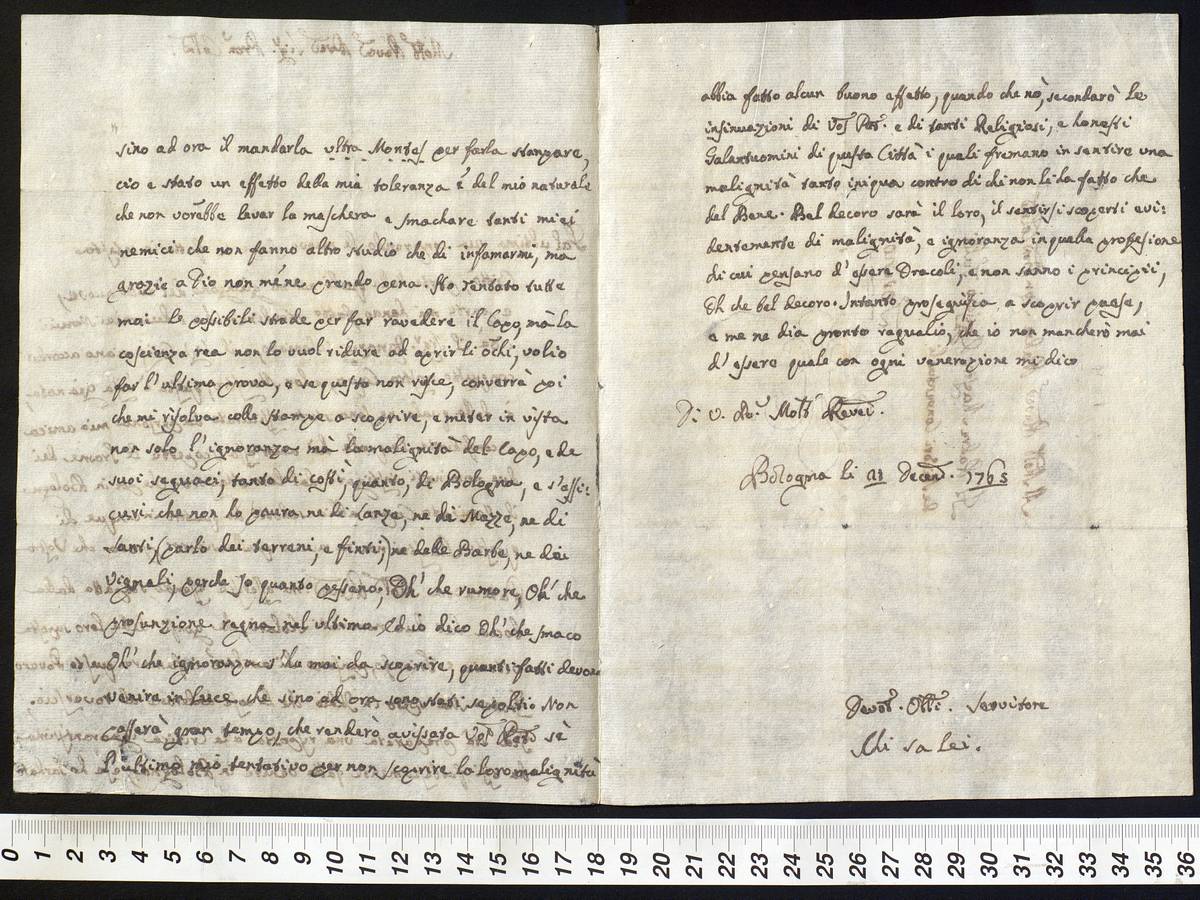 sino ad ora il mandarla ultra Montes per farla stanpare,
cio e stato un effetto della mia toleranza è del mio naturale
che non vorebbe levar la maschera e smachare tanti miei
nemici che non fanno altro studio che di infamarmi, ma
grazie a Dio non mene prendo pena. Ho tentato tutte
mai le possibili strade per far ravedere il Capo, mà la
coscienza rea non lo vuol ridure ad aprir li ochi, volio
far l'ultima prova, e se questo non riesce, converrà poi
che mi risolva colle stampe a scoprire, e meter in vista
non solo l'ignoranza mà la malignità del Capo, e de
suoi seguaci, tanto di costi, quanto, di Bologna, e s'assi:
curi che non ho paura ne di Lanze, ne di Mazze, ne di
Santi, (parlo dei terreni, e finti;) ne delle Barbe, ne dei
Vignali, perche so quanto pessano; Oh' che rumore, Oh' che
prosunzione regna nel ultima Ed io dico Oh' che smaco
Oh' che ignoranza s'ha mai da scoprire, quanti fatti devono
venire in luce che sino ad ora sono stati sepolti. Non
passerà gran tempo, che renderò avisata Vos Pat. sè
l'ultimo mio tentativo per non scoprire la loro malignità
abbia fatto alcun buono effetto, quando che nò, secondarò le
insinuazioni di Vos Pat. e di tanti Religiosi, e honesti
Galantuomini di questa Città i quali fremano in sentire una
malignità tanto iniqua contro di chi non li ha fatto che
del Bene. Bel decoro sarà il loro, il sentirsi scoperti evi:
dentemente di malignità, e ignoranza in quella professione
di cui pensano d'essere Oracoli, e non sanno i principii,
Oh che bel decoro. Intanto proseguisca a scoprir paese,
e me ne dia pronto raguaglio, che io non mancherò mai
d'essere quale con ogni venerazione mi dico
Di V. Molt' Reve.
Bologna li 11 Decem. 1765
Devot. Obb. Servitore
Chi sa lei.